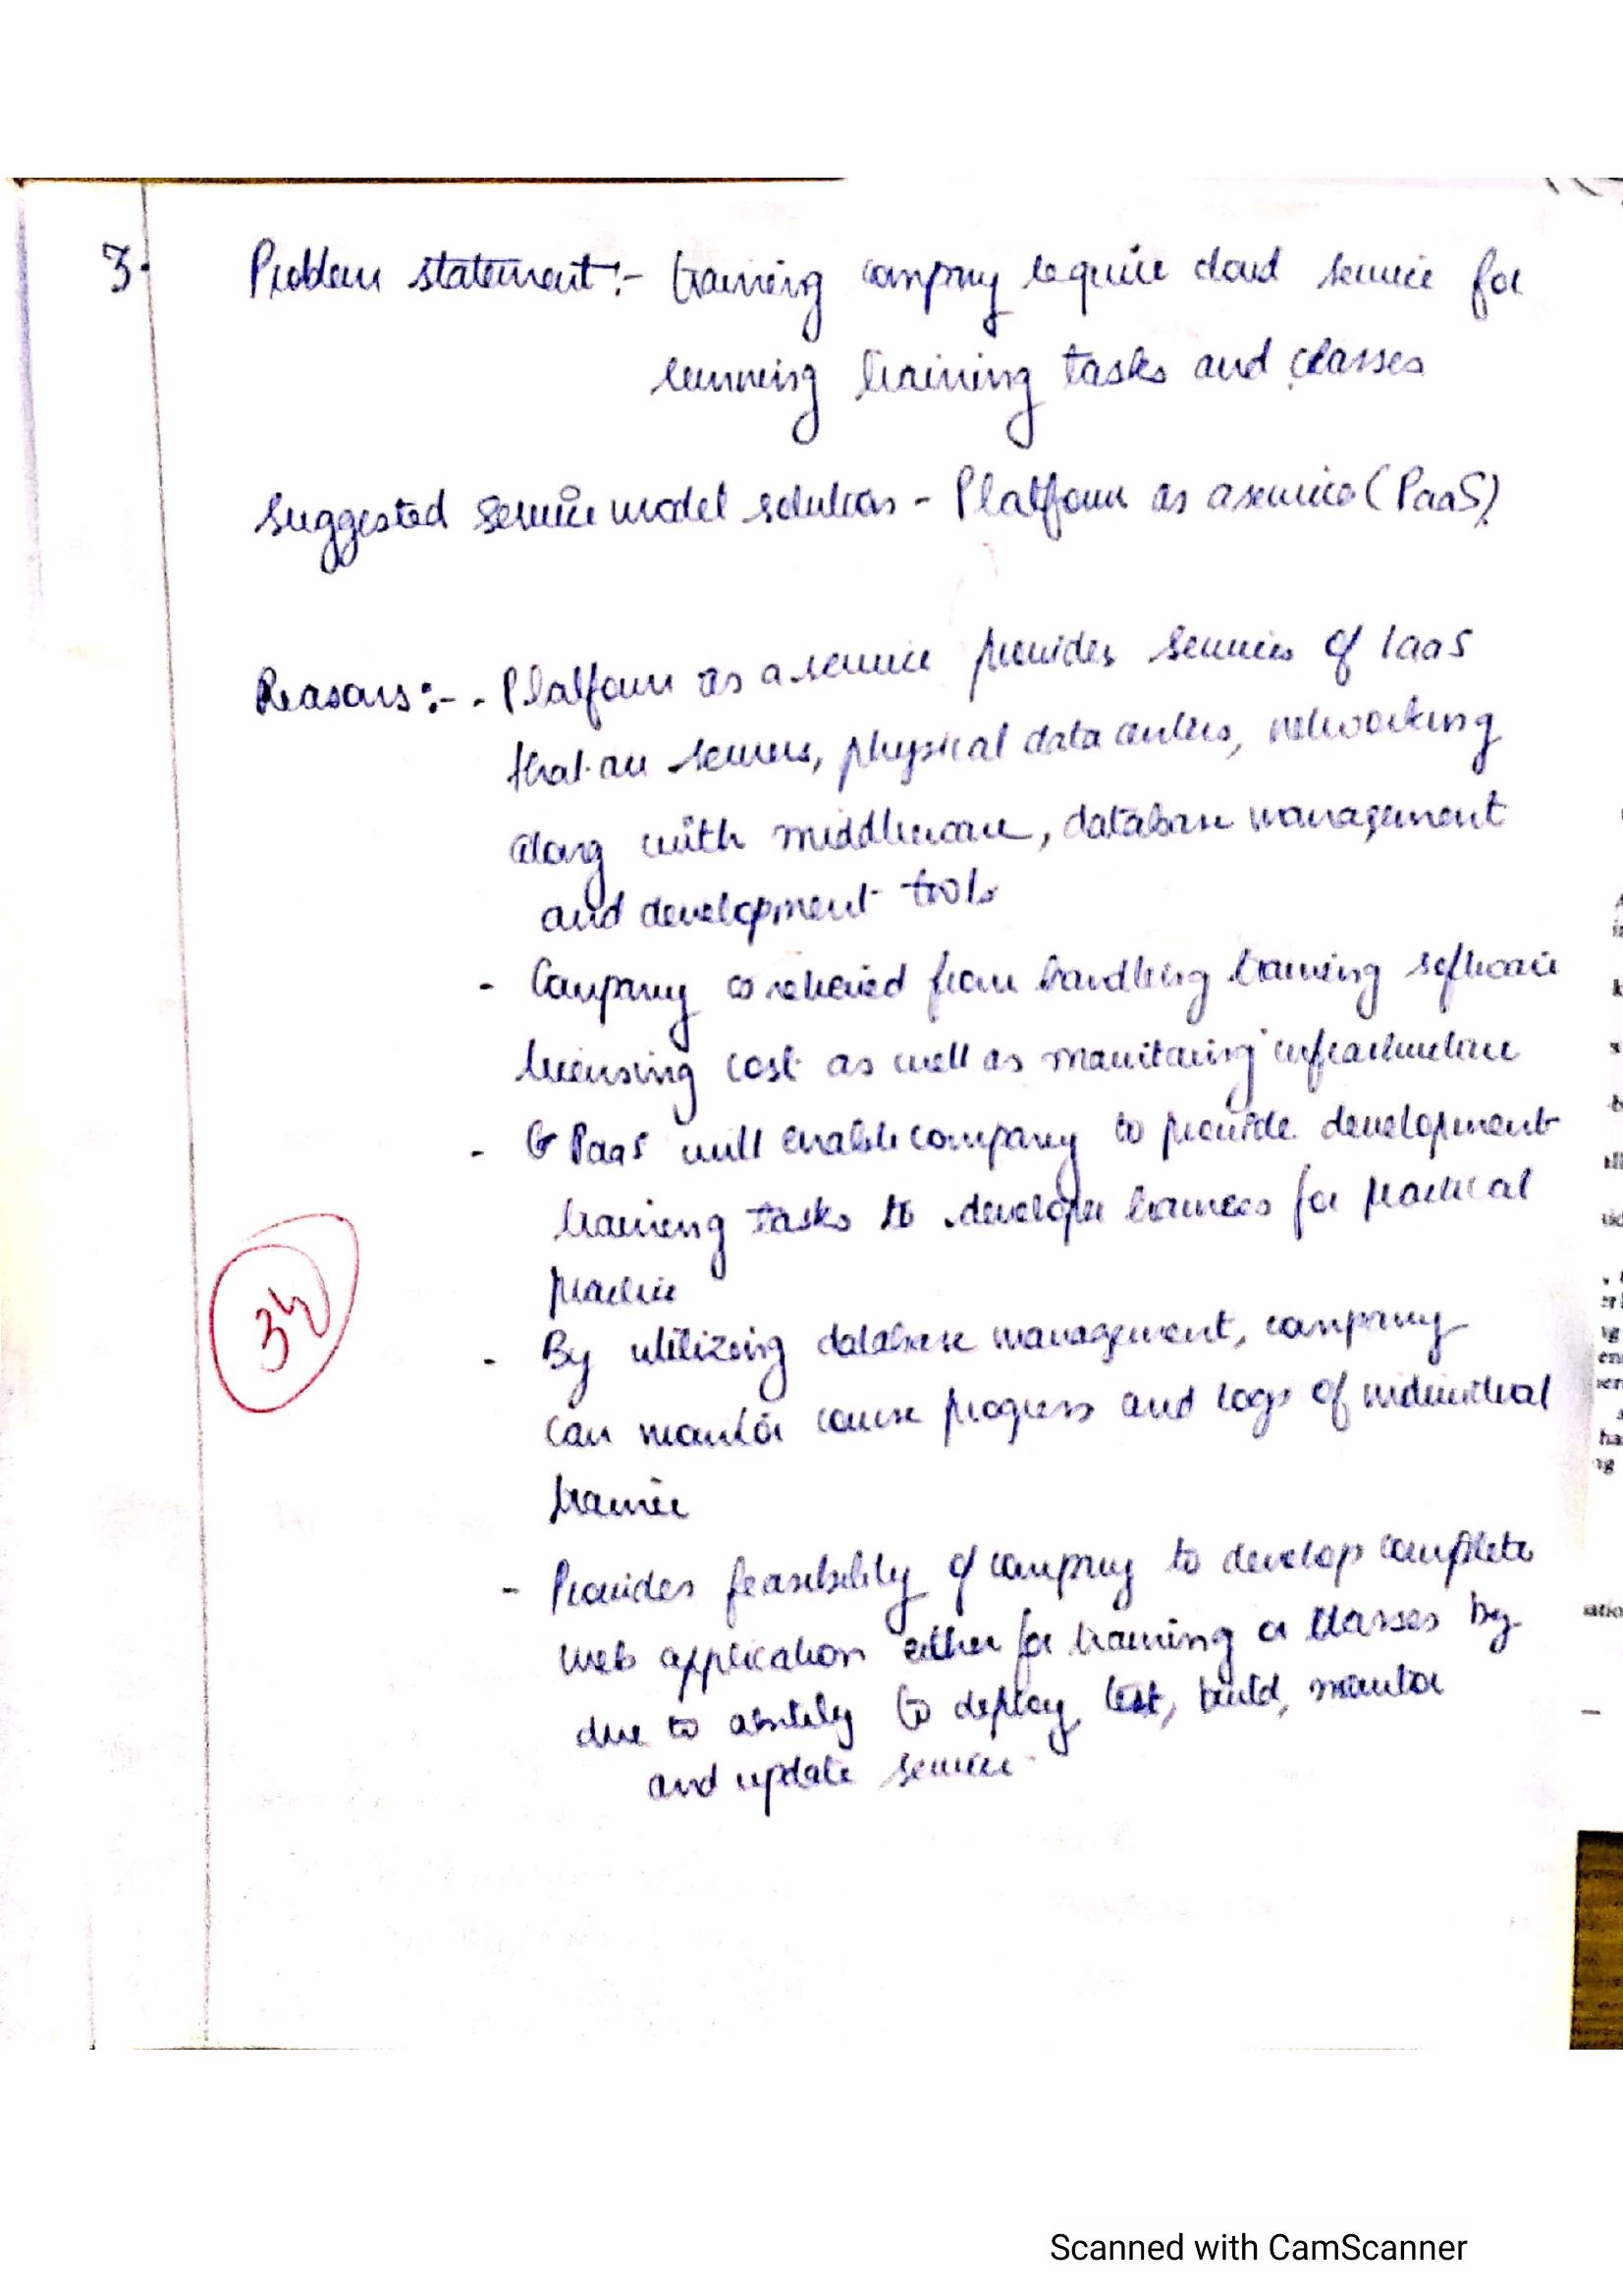 3.
Problem statement :- training company require cloud service for
running training tasks and classes
Suggested service model solution - Platform as a service (PaaS)
Reasons :- - Platform as a service provides services of IaaS
that are servers, physical data centers, networking
along with middleware, database management
and development tools
- Company is relieved from handling training software
licensing cost as well as monitoring infrastructure
- PaaS will enable company to provide development
training tasks to developer trainees for practical
practice
- By utilizing database management, company
can monitor course progress and logs of individual
trainee
- Provides feasibility of company to develop complete
web application either for training or classes by
due to ability to deploy, test, build, monitor
and update service.
Scanned with CamScanner